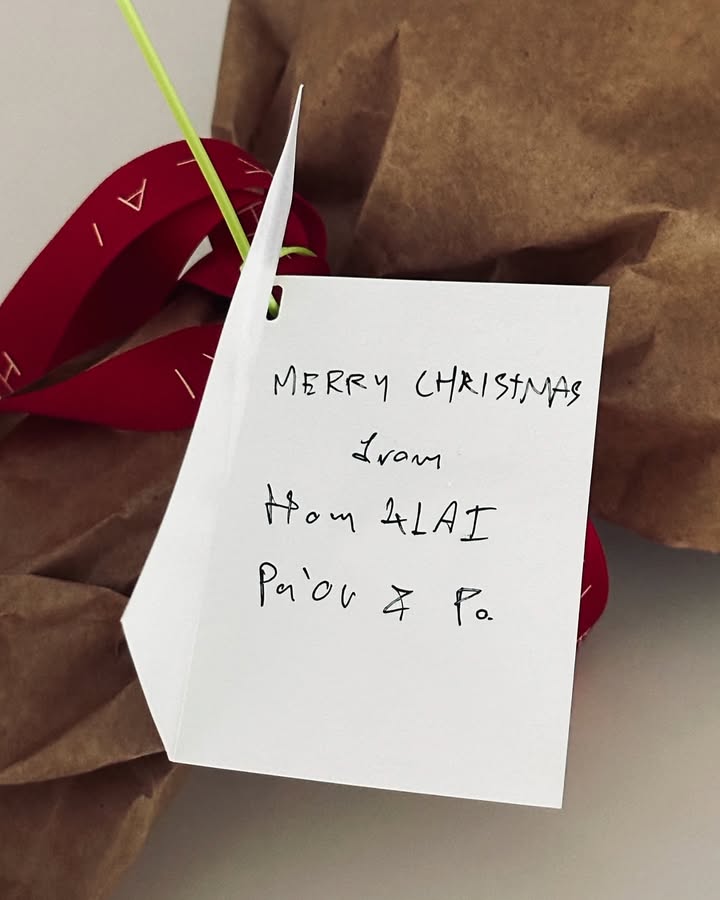 MERRY CHRISTMAS
from
Hom 4LAI
Pa'Ou & Po.